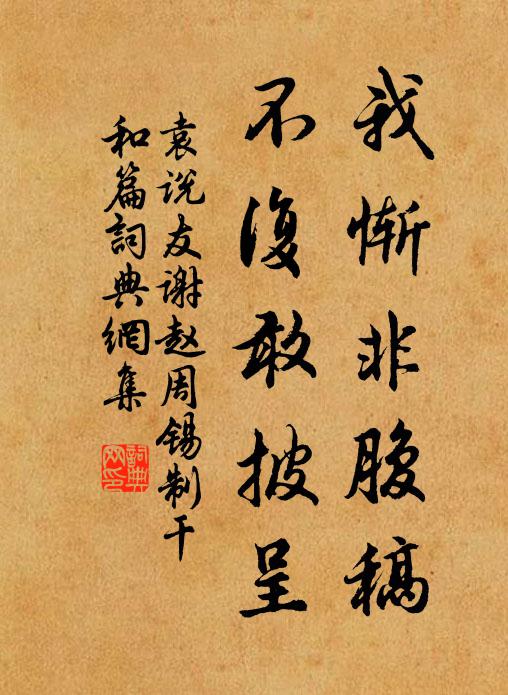 我慚非腹稿
不復敢披呈
袁说友谢赵周锡制干
和篇詞典網集
詞典
网印